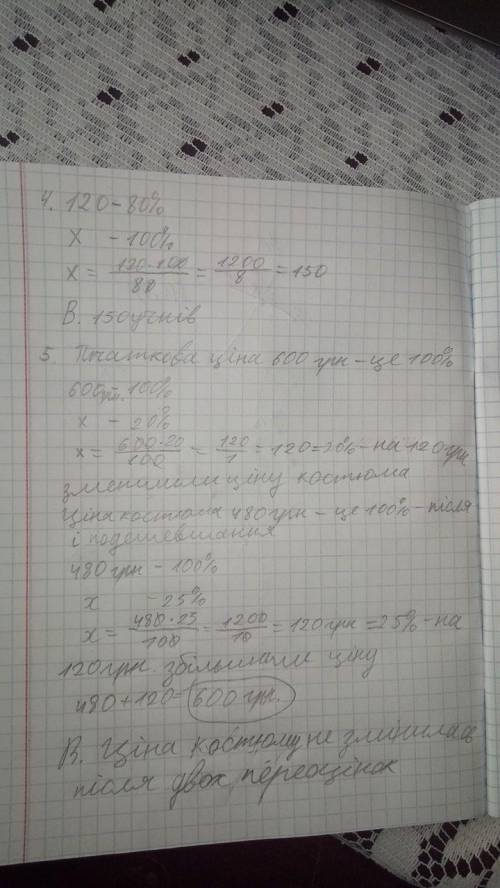 4. 120 - 80%
x - 100%
x = 120·100/80 = 1200/8 = 150
В. 150 учнів
5 Початкова ціна 600 грн - це 100%
600грн. 100%
x - 20%
x = 600·20/100 = 120/1 = 120 = 20% - на 120 грн
зменшили ціну костюма
Ціна костюма 480 грн - це 100% - після
і подешевшання
480 грн - 100%
x - 25%
x = 480·25/100 = 1200/10 = 120 грн = 25% - на
120 грн. збільшили ціну
480 + 120 = 600 грн.
В. Ціна костюму не змінилась
після двох переоцінок